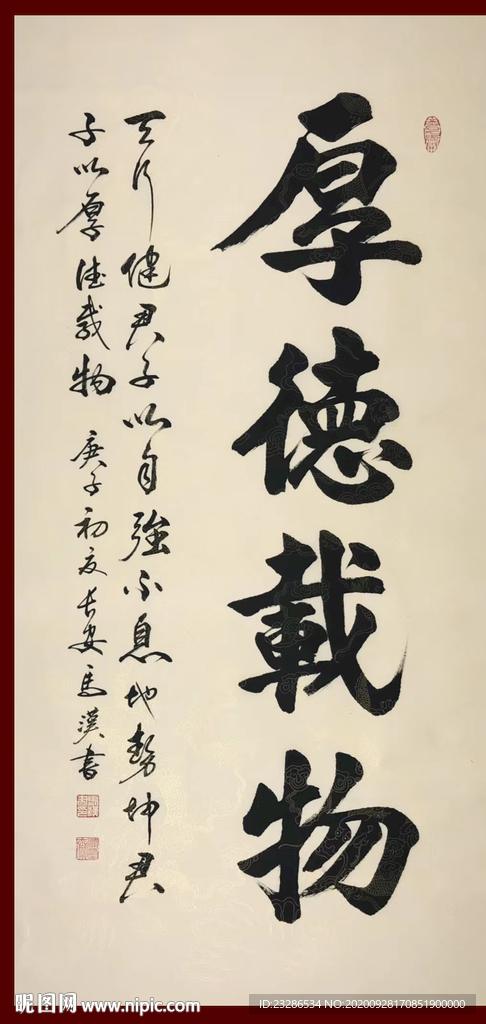 厚德載物
天行健君子以自強不息地勢坤君
子以厚德載物 庚子初夏長安馬漢書
昵图网 www.nipic.com
ID:23286534 NO:20200928170851900000